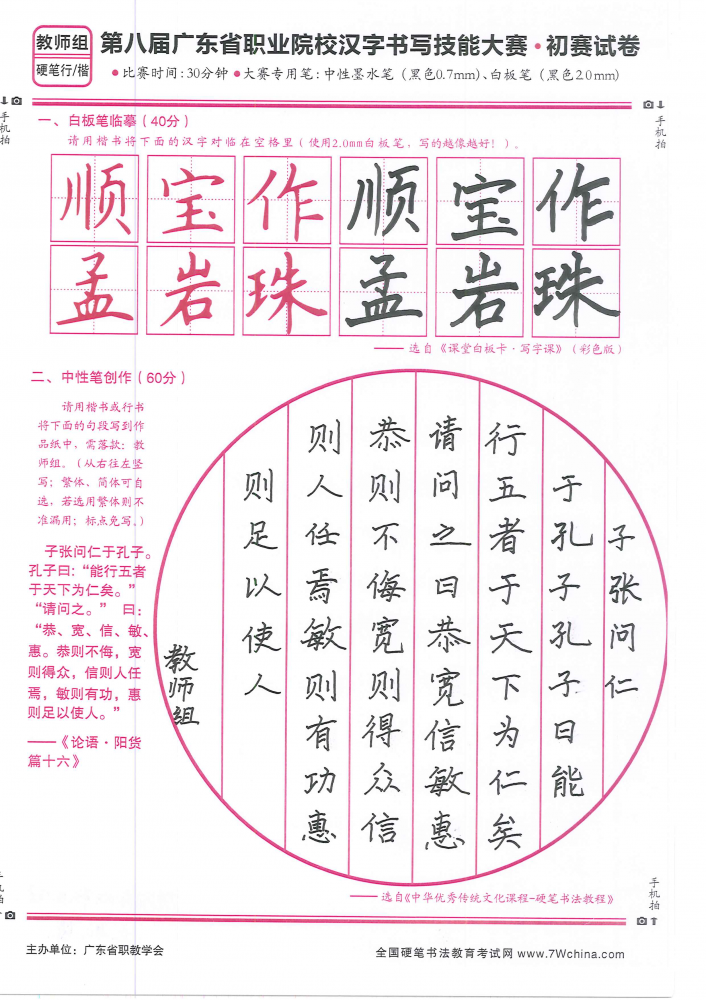 教师组
硬笔行/楷
第八届广东省职业院校汉字书写技能大赛·初赛试卷
●比赛时间:30分钟 ●大赛专用笔:中性墨水笔(黑色0.7mm)、白板笔(黑色2.0mm)
手机拍
手机拍
一、白板笔临摹(40分)
请用楷书将下面的汉字对临在空格里(使用2.0mm白板笔,写的越像越好!)。
顺 宝 作 顺 宝 作
孟 岩 珠 孟 岩 珠
——选自《课堂白板卡·写字课》(彩色版)
二、中性笔创作(60分)
请用楷书或行书
将下面的句段写到作
品纸中,需落款:教
师组。(从右往左竖
写;繁体、简体可自
选,若选用繁体则不
准漏用;标点免写。)
子张问仁于孔子。
孔子曰:“能行五者
于天下为仁矣。”
“请问之。” 曰:
“恭、宽、信、敏、
惠。恭则不侮,宽
则得众,信则人任
焉,敏则有功,惠
则足以使人。”
——《论语·阳货
篇十六》
子张问仁
于孔子孔子曰能
行五者于天下为仁矣
请问之曰恭宽信敏惠
恭则不侮宽则得众信
则人任焉敏则有功惠
则足以使人
教师组
——选自《中华优秀传统文化课程-硬笔书法教程》
手机拍
主办单位:广东省职教学会
全国硬笔书法教育考试网 www.7Wchina.com